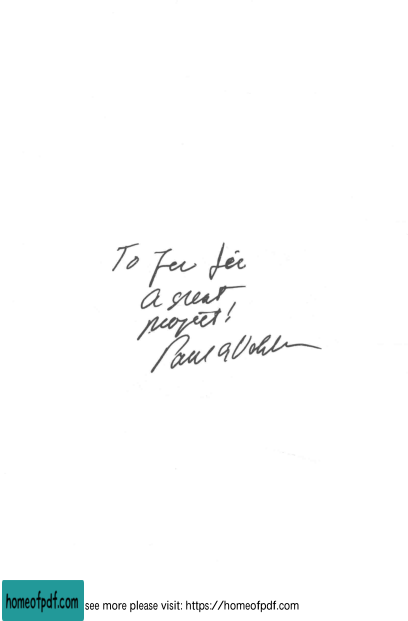 To
A great
project!
Paul A Volcker
homeofpdf.com
see more please visit: https://homeofpdf.com